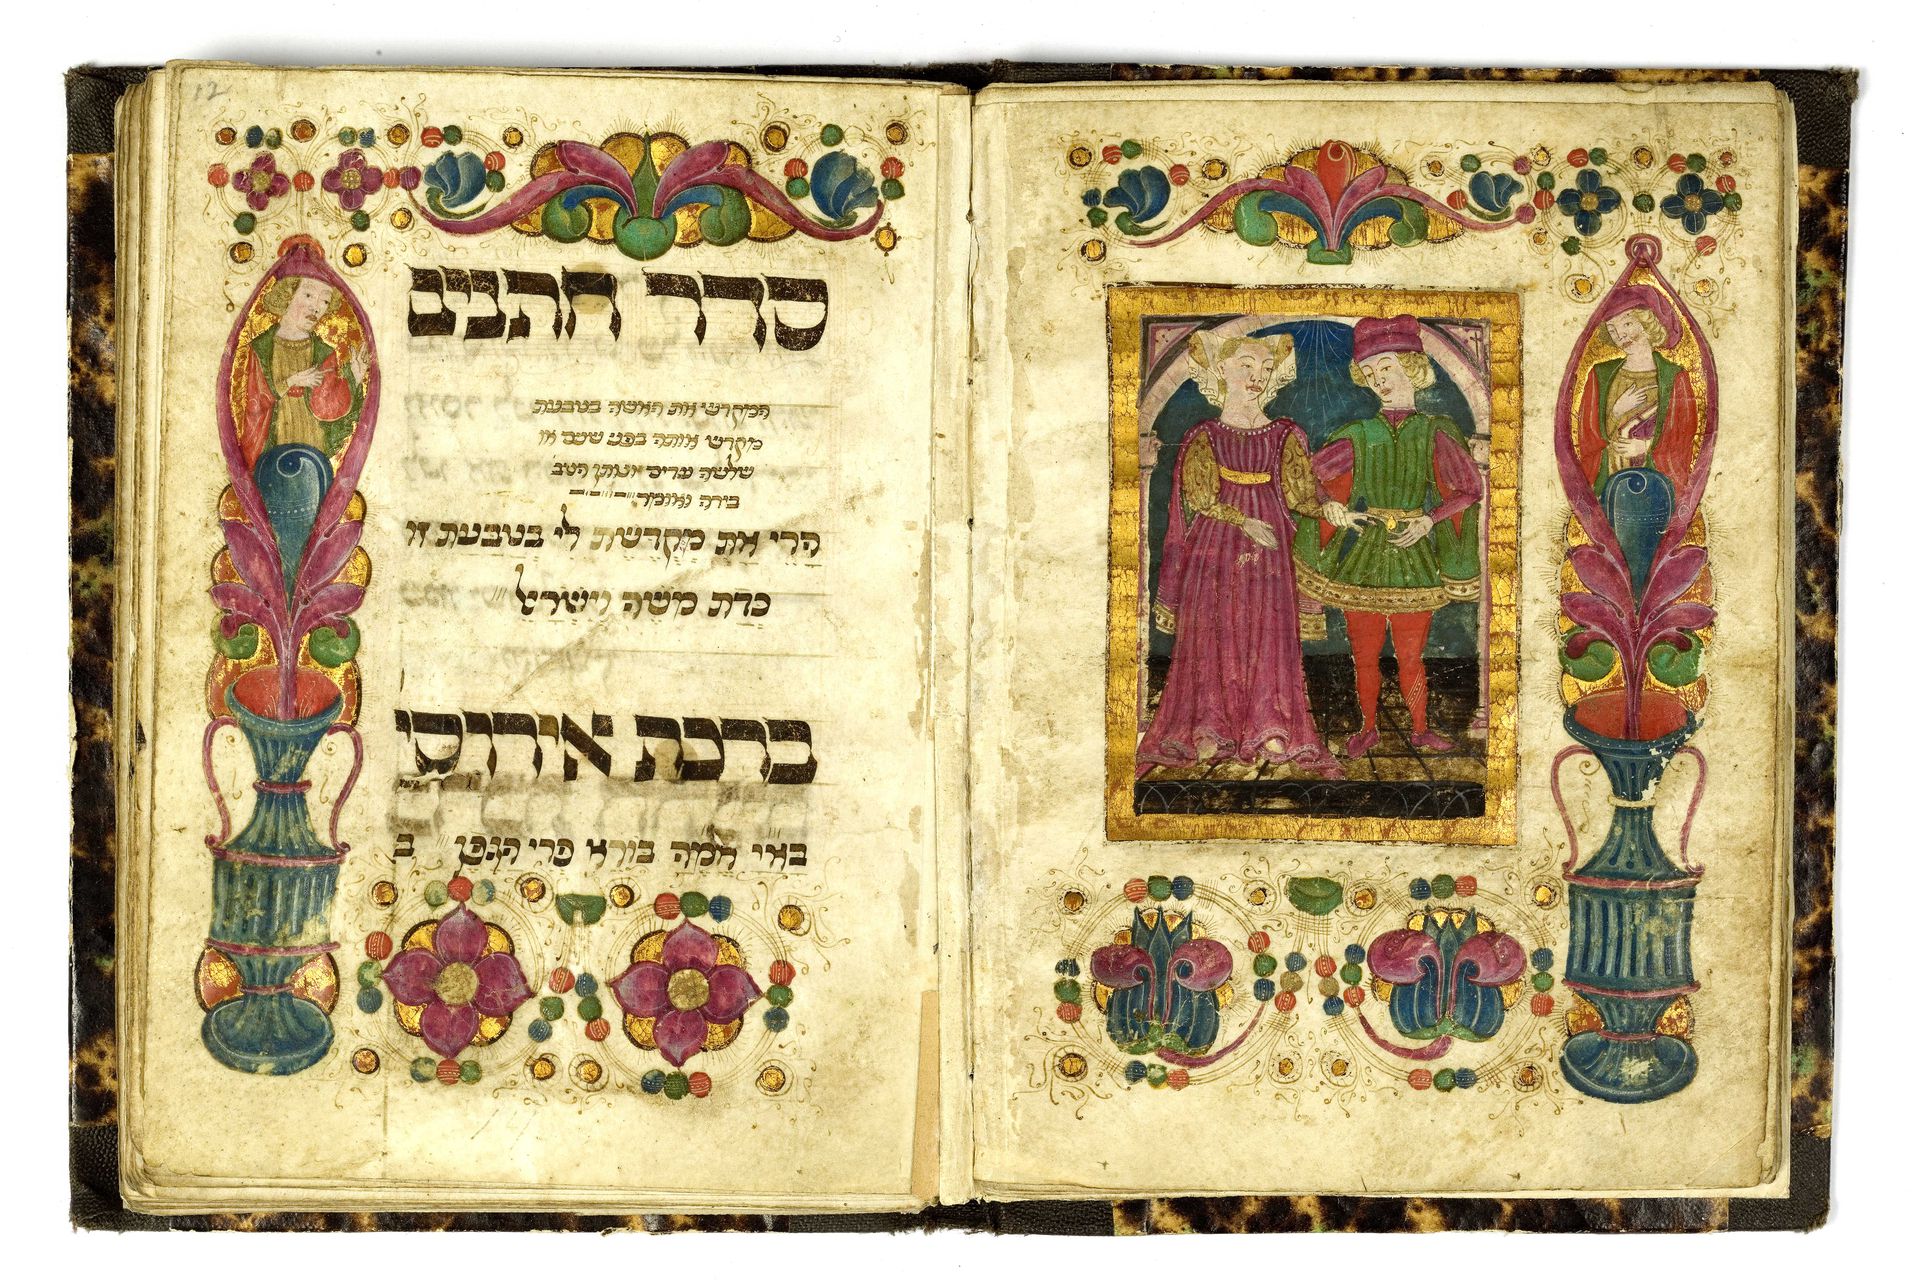 12
סדר חתנים
המקדש את האשה בטבעת
מקדש אותה בפני שנים או
שלשה עדים ונותן הטב'
בידה ואומר
הרי את מקדשת לי בטבעת זו
כדת משה וישראל
ברכת אירוסי
באי אמה בורא פרי הגפן ב